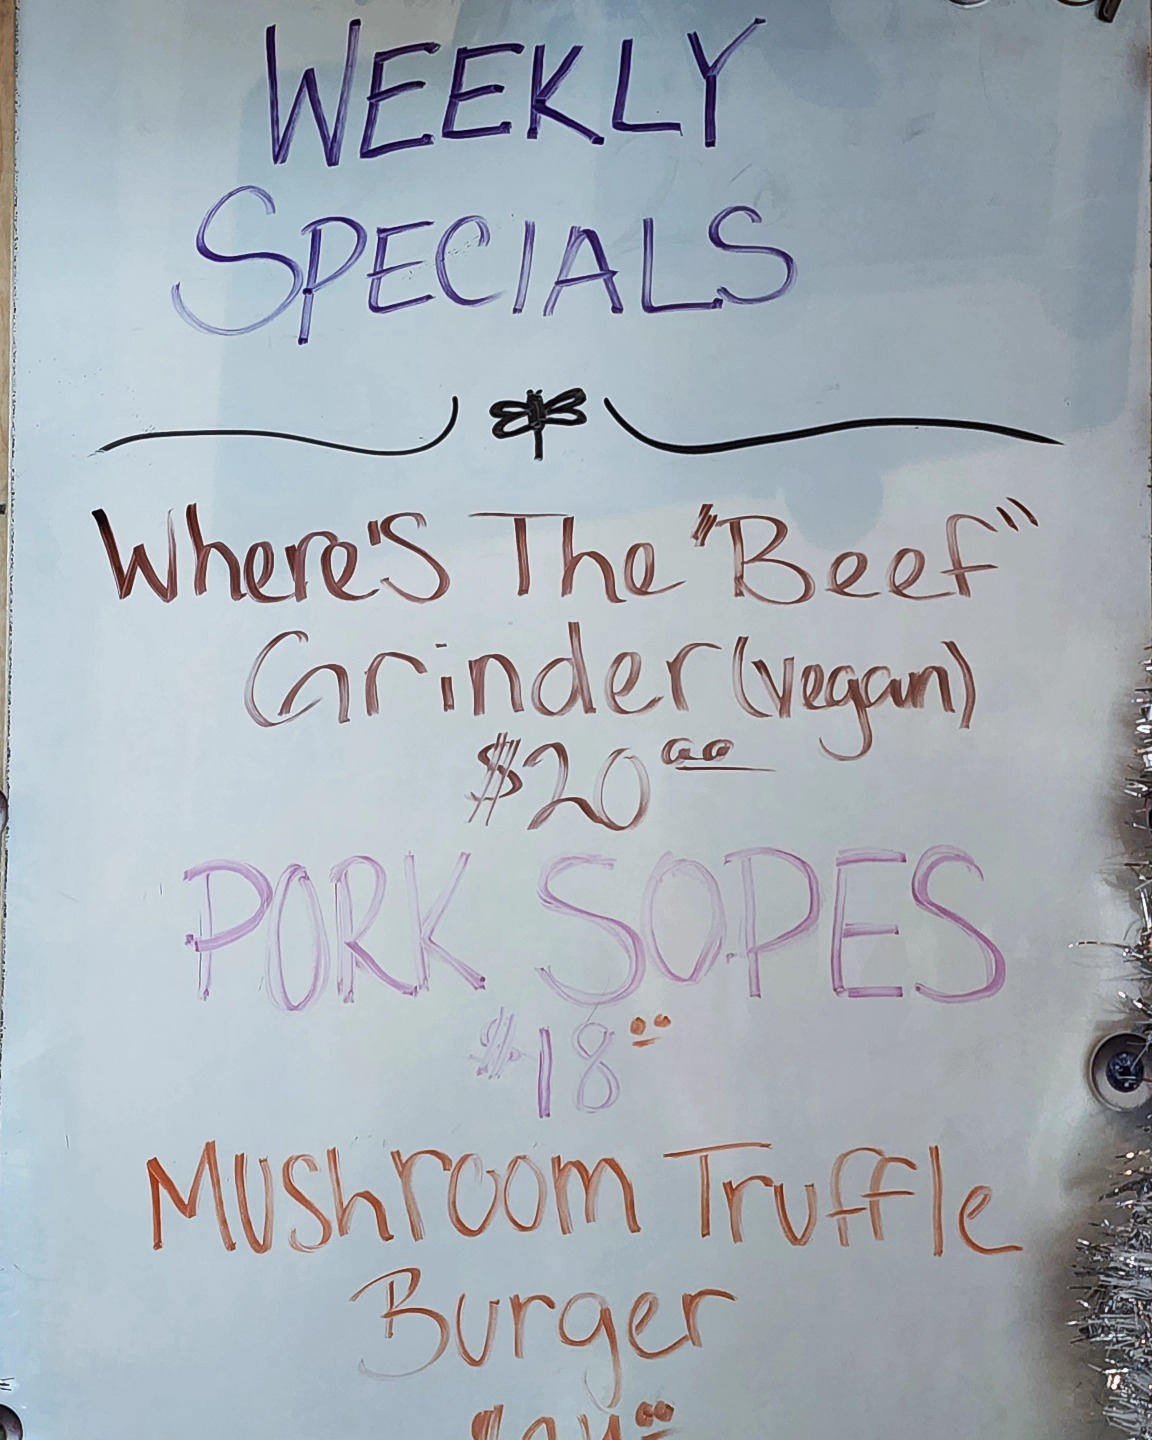 WEEKLY
SPECIALS
Where's The "Beef"
Grinder (vegan)
$20.00
PORK SOPES
$18..
Mushroom Truffle
Burger